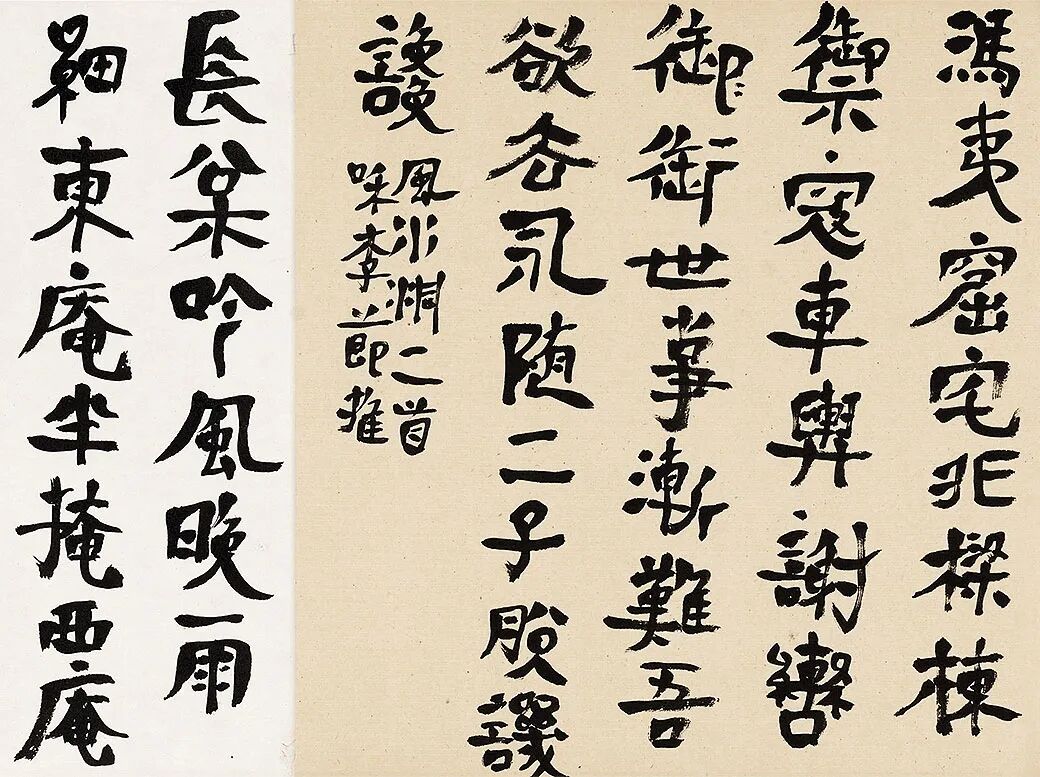 馮夷窟宅非樑棟
禦寇車輿謝轡
御衘世事漸難吾
欲去永随二子脫譏
讒
風水洞二首
和李節推
長枀吟風晚雨
細東庵半掩西庵